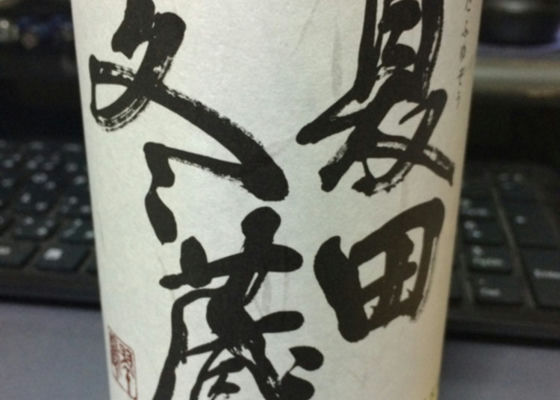 夏田
冬蔵